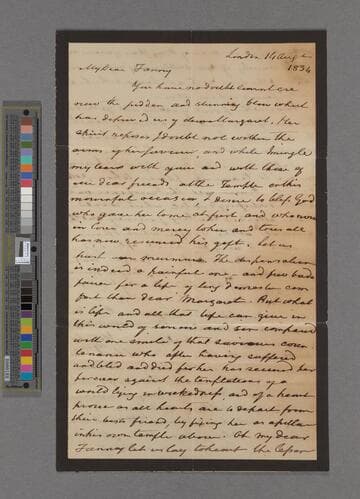 London 14 Augt
1834
My Dear Fanny
You have no doubt learnt ere
now the sudden and stunning blow which
has deprived us of dear Margaret. Her
spirit reposes I doubt not within the
arms of her Saviour, and while I mingle
my tears with yours and with those of
our dear friends at the Temple on this
mournful occasion, I desire to bless God
who gave her to me at first, and who now
in love and mercy to her and to us all
has now resumed his gift. Let us
not murmur. The dispensation
is indeed a painful one, and few had
power for a life of long domestic com
fort than dear Margaret. But what
is life and all that life can give in
this world of sorrow and sin compared
with one smile of that Saviour's coun
tenance who after having suffered
and bled and died for her has secured her
forever against the temptations of a
world lying in wickedness and of a heart
prone as all hearts are to depart from
their best friend, by fixing her as a pillar
in his own temple above. Oh my dear
Fanny let us lay to heart the lesson